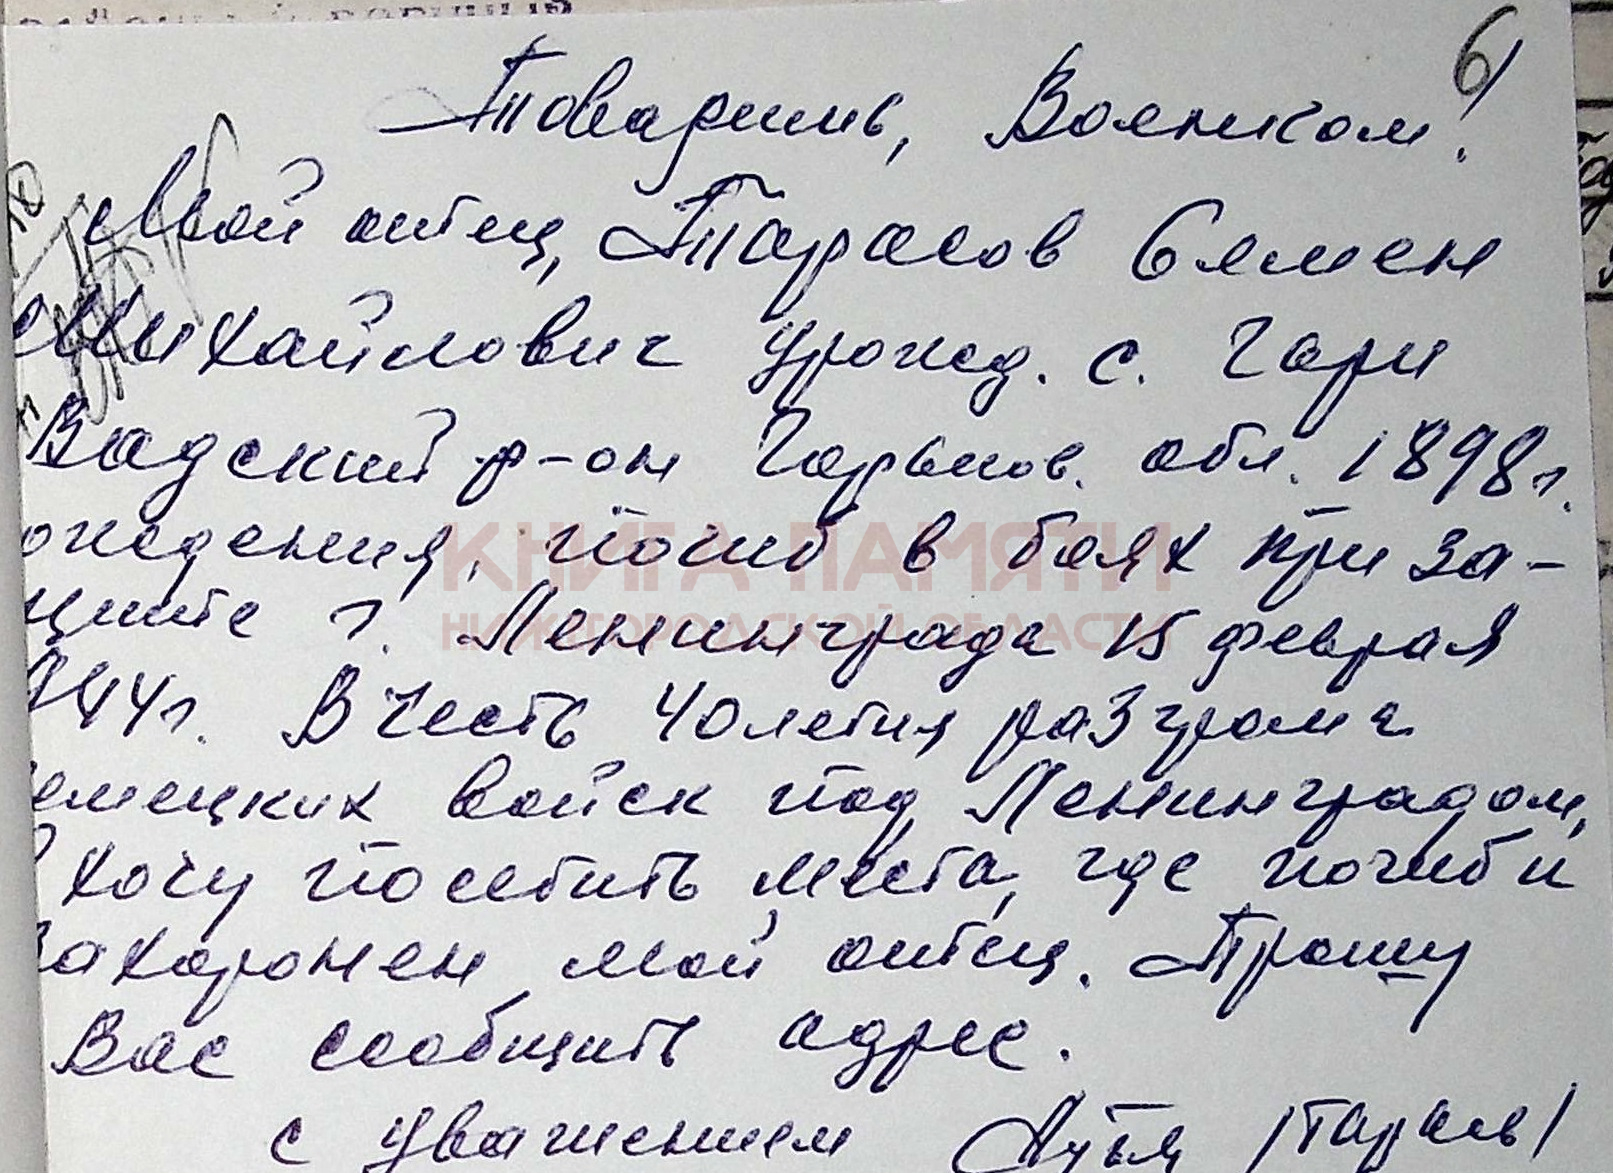 6
Товарищь, Военком!
Мой отец, Тарасов Семен
Михайлович урожд. с. Гари
Вадский р-он Горьков. обл. 1898г.
ождения, погиб в боях при за-
щите г. Ленинграда 15 февраля
944г. В честь 40летия разгрома
емецких войск под Ленинградом,
хочу посетить места, где погиб и
захоронен мой отец. Прошу
Вас сообщить адрес.
с уважением /Тарасов/
КНИГА ПАМЯТИ
НИЖЕГОРОДСКОЙ ОБЛАСТИ